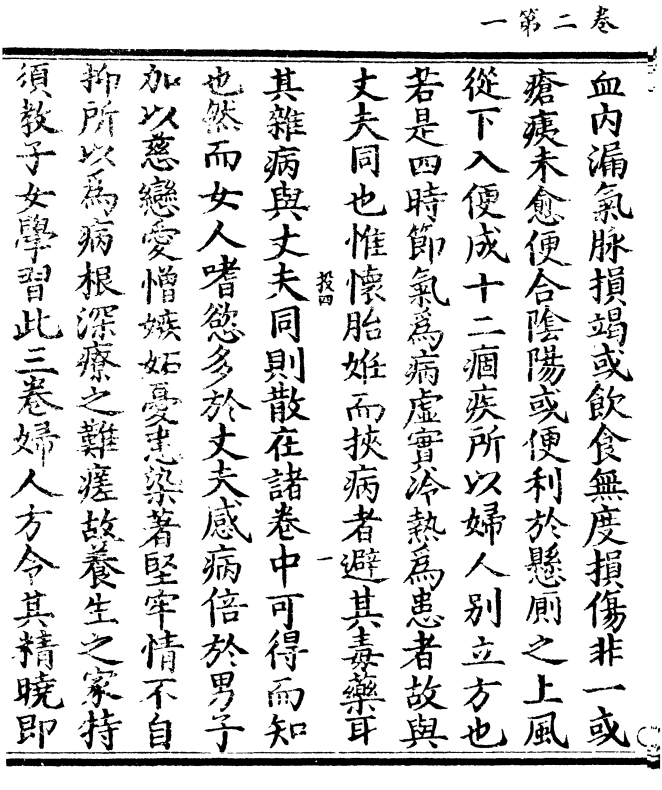 卷二第一
血內漏氣脉損竭或飲食無度損傷非一或
瘡痍未愈便合陰陽或便利於懸厠之上風
從下入便成十二痼疾所以婦人別立方也
若是四時節氣爲病虛實冷熱爲患者故與
丈夫同也惟懷胎姙而挾病者避其毒藥耳
其雜病與丈夫同則散在諸卷中可得而知
也然而女人嗜慾多於丈夫感病倍於男子
加以慈戀愛憎嫉妬憂恚染著堅牢情不自
抑所以爲病根深療之難瘥故養生之家特
須教子女學習此三卷婦人方令其精曉即